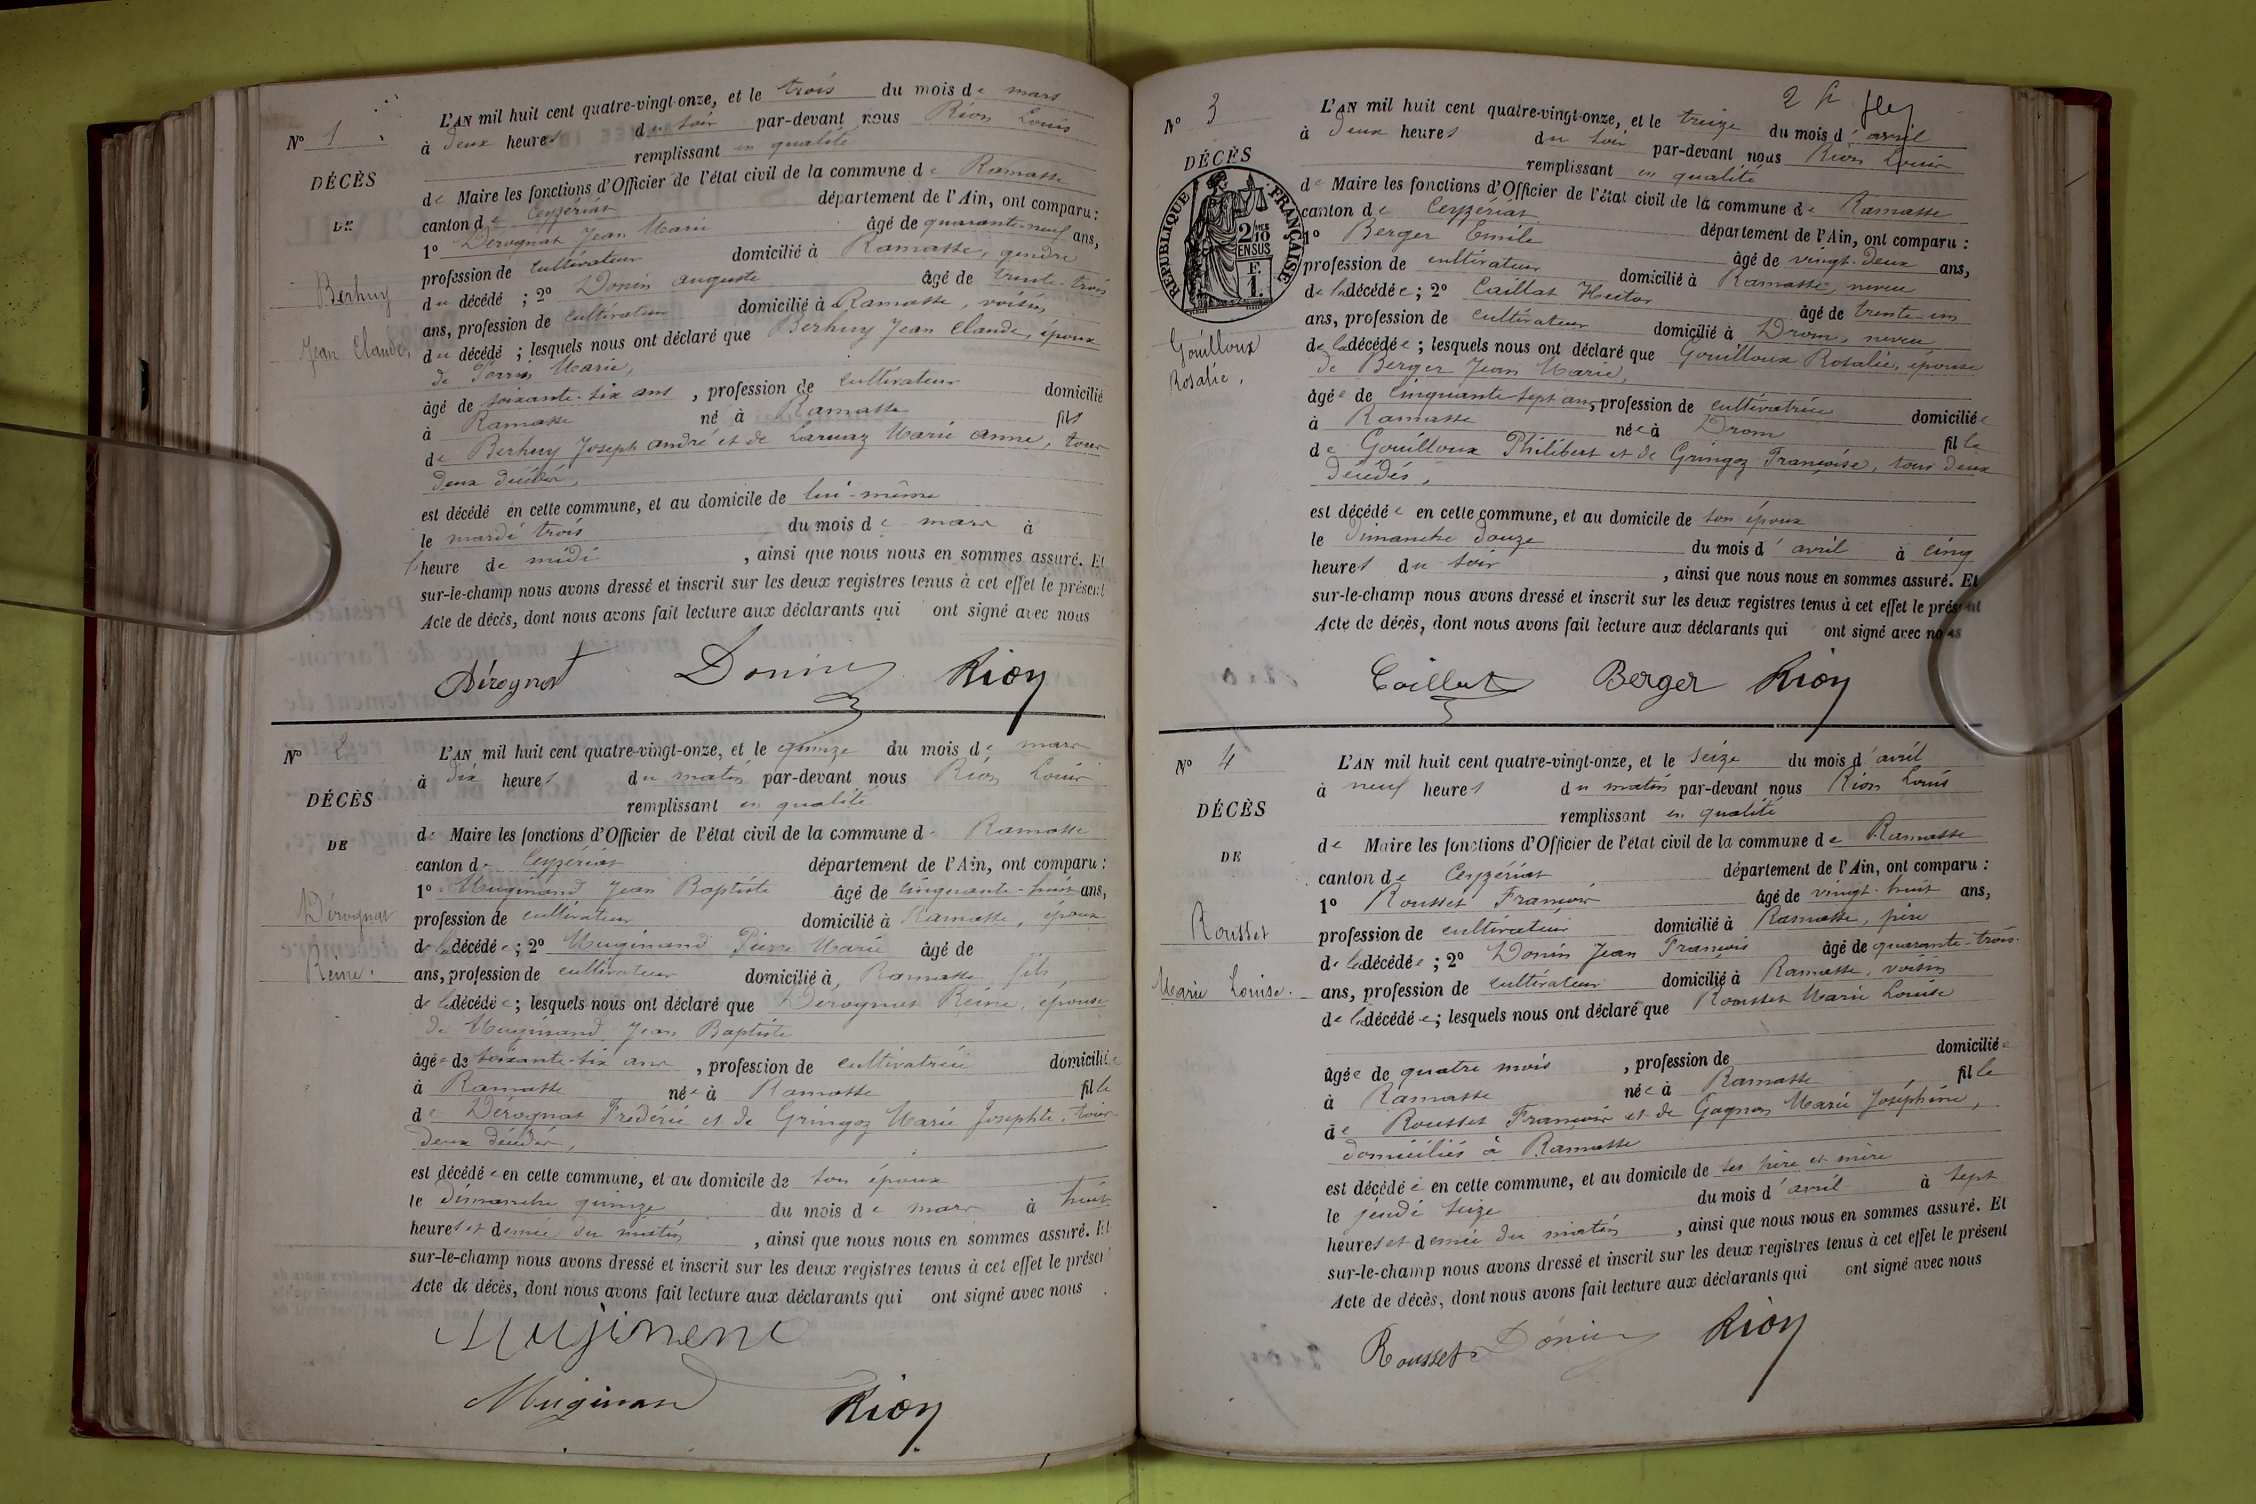 N° 1
DÉCÈS
DE
Berhuy
Jean Claude,
L'AN mil huit cent quatre-vingt-onze, et le trois du mois de mars
à deux heures du soir par-devant nous Rion Louis
remplissant en qualité
de Maire les fonctions d'Officier de l'état civil de la commune de Ramasse
canton de Ceyzériat département de l'Ain, ont comparu :
1° Dérognat Jean Marie âgé de quarante-neuf ans,
profession de cultivateur domicilié à Ramasse, gendre
du décédé ; 2° Donin auguste âgé de trente-trois
ans, profession de cultivateur domicilié à Ramasse, voisin
du décédé ; lesquels nous ont déclaré que Berhuy Jean Claude, époux
de Marie,
âgé de soixante-six ans, profession de cultivateur domicilié
à Ramasse né à Ramasse fils
de Berhuy Joseph andré et de Marie anne, tous
deux décédés,
est décédé en cette commune, et au domicile de lui-même
le mardi trois du mois de mars à
heure de midi, ainsi que nous nous en sommes assuré. Et
sur-le-champ nous avons dressé et inscrit sur les deux registres tenus à cet effet le présent
Acte de décès, dont nous avons fait lecture aux déclarants qui ont signé avec nous
Dérognat Donin Rion
N° 2
DÉCÈS
DE
Dérognat
Reine.
L'AN mil huit cent quatre-vingt-onze, et le quinze du mois de mars
à dix heures du matin par-devant nous Rion Louis
remplissant en qualité
de Maire les fonctions d'Officier de l'état civil de la commune de Ramasse
canton de Ceyzériat département de l'Ain, ont comparu :
1° Muginand Jean Baptiste âgé de cinquante-huit ans,
profession de cultivateur domicilié à Ramasse, époux
de la décédée ; 2° Muginand Pierre Marie âgé de
ans, profession de cultivateur domicilié à Ramasse fils
de la décédée ; lesquels nous ont déclaré que Dérognat Reine, épouse
de Muginand Jean Baptiste
âgée de soixante-six ans, profession de cultivatrice domiciliée
à Ramasse née à Ramasse fille
de Dérognat Frédéric et de Gringoz Marie Josephte, tous
deux décédés,
est décédée en cette commune, et au domicile de son époux
le dimanche quinze du mois de mars à huit
heures et demie du matin, ainsi que nous nous en sommes assuré. Et
sur-le-champ nous avons dressé et inscrit sur les deux registres tenus à cet effet le présent
Acte de décès, dont nous avons fait lecture aux déclarants qui ont signé avec nous
Muginand Rion
N° 3
DÉCÈS
RÉPUBLIQUE FRANÇAISE
2/10 EN SUS
F. 1.
Gouilloux
Rosalie,
L'AN mil huit cent quatre-vingt-onze, et le treize du mois d'avril
à deux heures du soir par-devant nous Rion Louis
remplissant en qualité
de Maire les fonctions d'Officier de l'état civil de la commune de Ramasse
canton de Ceyzériat département de l'Ain, ont comparu :
1° Berger Emile âgé de vingt-deux ans,
profession de cultivateur domicilié à Ramasse, neveu
de la décédée ; 2° Caillat Hector âgé de trente-un
ans, profession de cultivateur domicilié à Drom, neveu
de la décédée ; lesquels nous ont déclaré que Gouilloux Rosalie, épouse
de Berger Jean Marie,
âgée de cinquante-sept ans, profession de cultivatrice domiciliée
à Ramasse née à Drom fille
de Gouilloux Philibert et de Gringoz Françoise, tous deux
décédés,
est décédée en cette commune, et au domicile de son époux
le dimanche douze du mois d'avril à cinq
heures du soir, ainsi que nous nous en sommes assuré. Et
sur-le-champ nous avons dressé et inscrit sur les deux registres tenus à cet effet le présent
Acte de décès, dont nous avons fait lecture aux déclarants qui ont signé avec nous
Caillat Berger Rion
N° 4
DÉCÈS
DE
Rousset
Marie Louise.
L'AN mil huit cent quatre-vingt-onze, et le seize du mois d'avril
à neuf heures du matin par-devant nous Rion Louis
remplissant en qualité
de Maire les fonctions d'Officier de l'état civil de la commune de Ramasse
canton de Ceyzériat département de l'Ain, ont comparu :
1° Rousset François âgé de vingt-huit ans,
profession de cultivateur domicilié à Ramasse, père
de la décédée ; 2° Donin Jean François âgé de quarante-trois
ans, profession de cultivateur domicilié à Ramasse, voisin
de la décédée ; lesquels nous ont déclaré que Rousset Marie Louise
âgée de quatre mois, profession de domiciliée
à Ramasse née à Ramasse fille
de Rousset François et de Gagnon Marie Joséphine,
domiciliés à Ramasse
est décédée en cette commune, et au domicile de ses père et mère
le jeudi seize du mois d'avril à sept
heures et demie du matin, ainsi que nous nous en sommes assuré. Et
sur-le-champ nous avons dressé et inscrit sur les deux registres tenus à cet effet le présent
Acte de décès, dont nous avons fait lecture aux déclarants qui ont signé avec nous
Rousset Donin Rion